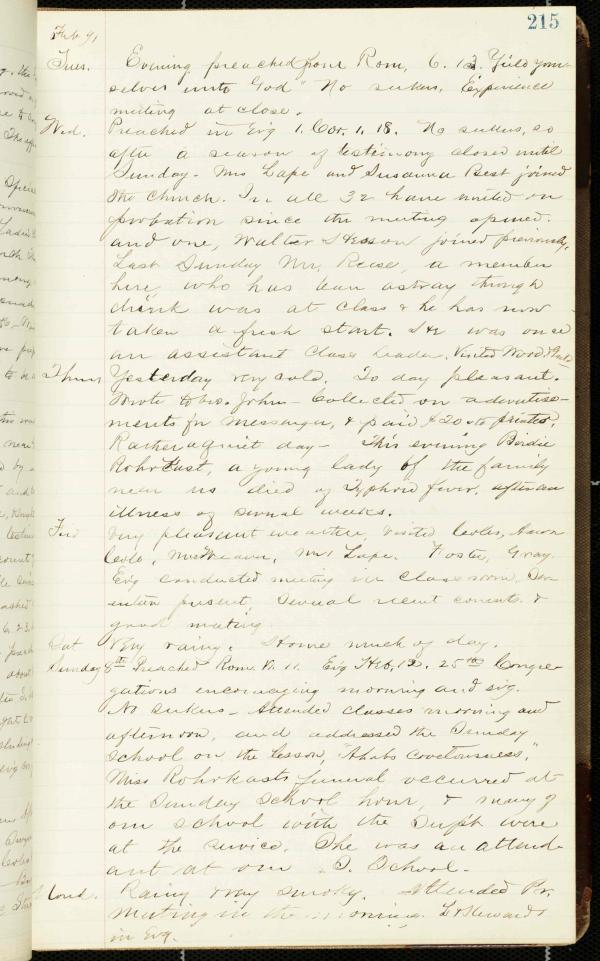 215
Feb 91
Tues. Evening preached from Rom. 6. 13. "Yield your-
selves unto God" No seekers, Experience
meeting at close.
Wed. Preached in Evg 1. Cor. 1, 18. No seekers, so
after a season of testimony closed until
Sunday - Mrs Lape and Susanna Best joined
the church. In all 32 have united on
probation since the meeting opened.
and one, Walter joined previously.
Last Sunday Mr. Reese, a member
here, who has been astray through
drink was at class & he has now
taken a fresh start. He was once
an assistant Class Leader. Visited Wood &
Thurs Yesterday very cold. To day pleasant.
Wrote to bro. John - Collected on advertise-
ments for Messenger, & paid $20 to printer.
Rather a quiet day - This evening Birdie
RohrKast, a young lady of the family
near us died of Typhoid fever, after an
illness of several weeks.
Fri Very pleasant weather, visited Coles, Aaron
Cole, Mrs Weaver, Mrs Lape. Foster, Gray.
Evg conducted meeting in Class room, Sev-
enteen present, Several recent converts &
good meeting
Sat Very rainy. Home much of day.
Sunday 8th Preached Rom. VI. 11. Evg Heb. 12. 25th Congre-
gations encouraging morning and evg.
No seekers - Attended classes morning and
afternoon, and addressed the Sunday
School on the Lesson, "Ahabs Covetousness."
Miss Rohrkasts funeral occurred at
the Sunday School hour, & many of
our school with the Supt were
at the service. She was an attend-
ant at our S. School.
Mond. Rainy & very smoky. Attended Pr.
Meeting in the morning. L & Stewards
in Evg.